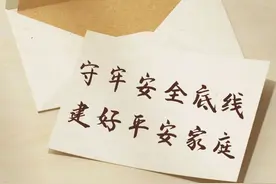 守牢安全底线
建好平安家庭